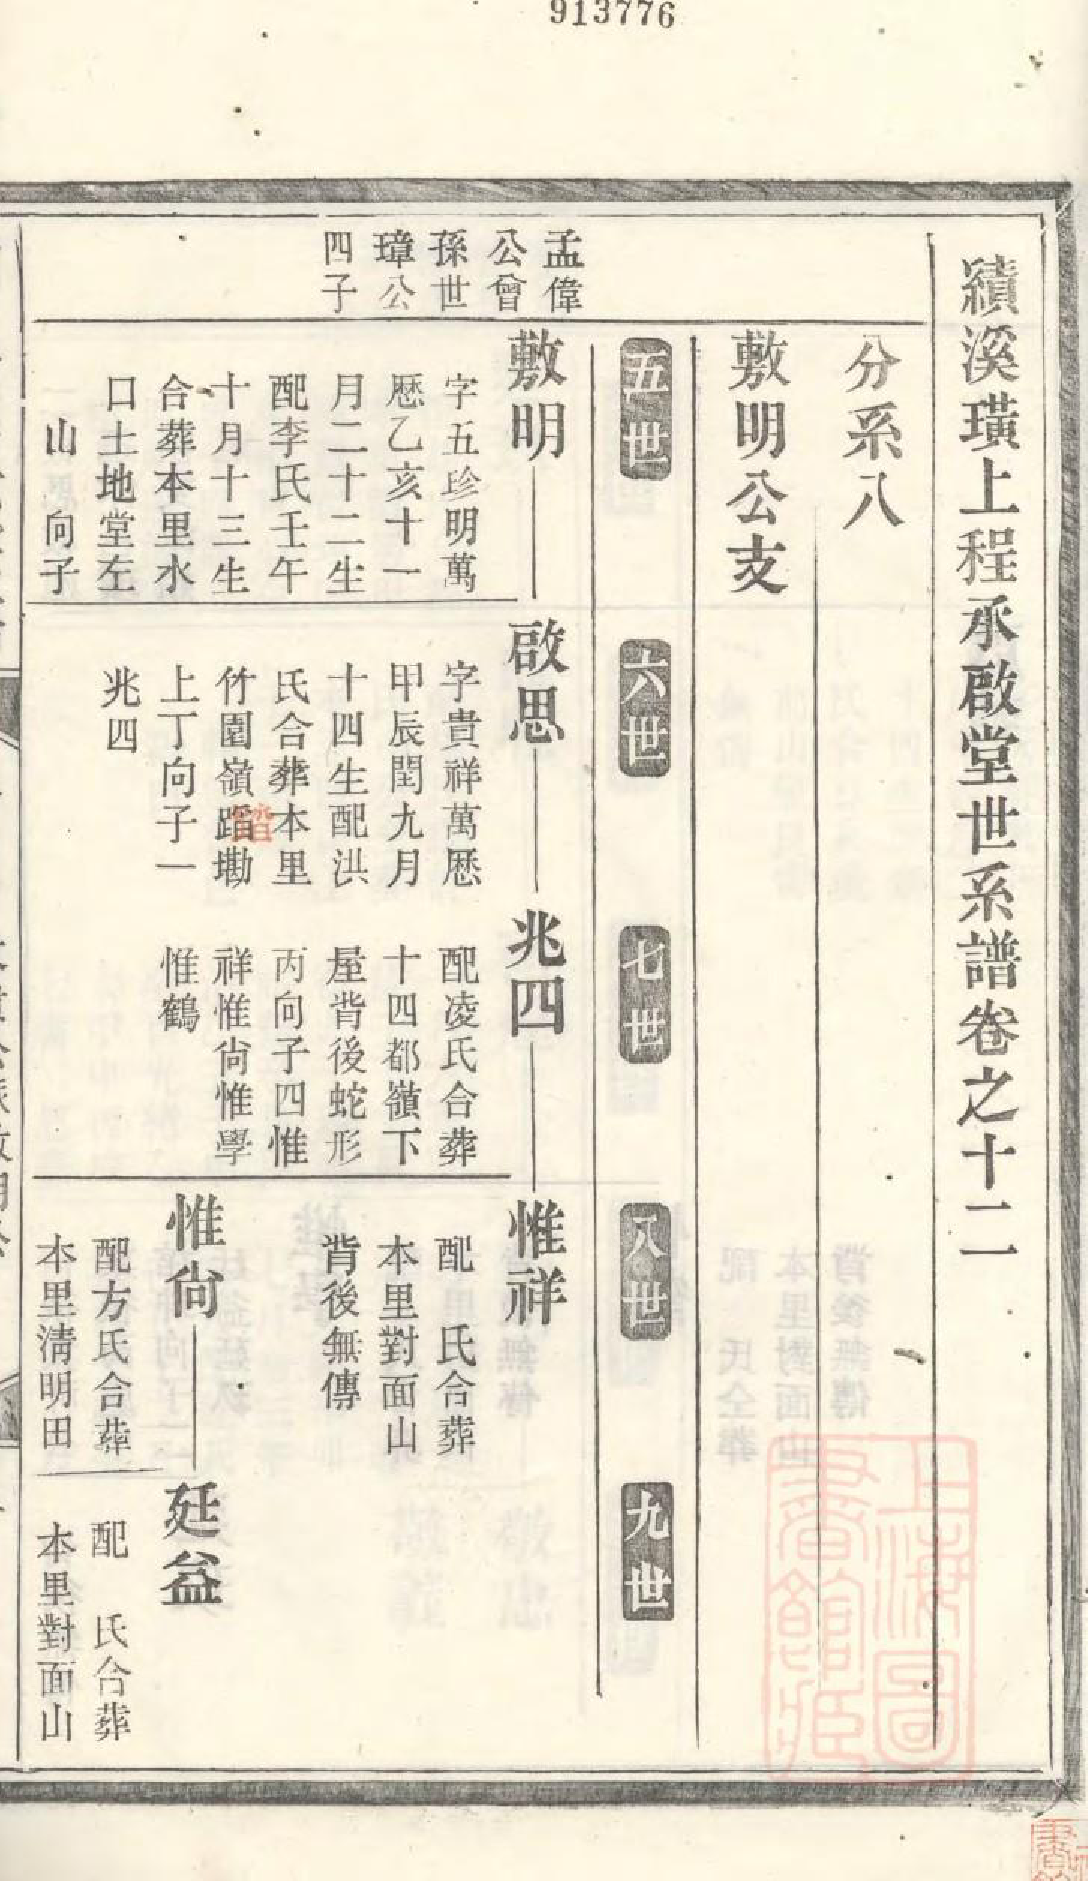 913776
績溪璜上程承啟堂世系譜卷之十二
分系八
敷明公支
五世
六世
七世
八世
九世
孟偉
公曾
孫世
璋公
四子
敷明
字五珍明萬
厯乙亥十一
月二十二生
配李氏壬午
十月十三生
合葬本里水
口土地堂左
山　向子
啟思
字貴祥萬厯
甲辰閏九月
十四生配洪
氏合葬本里
竹園嶺踏墈
上丁向子一
兆四
兆四
配凌氏合葬
十四都嶺下
屋背後蛇形
丙向子四惟
祥惟尙惟學
惟鶴
惟祥
配　氏合葬
本里對面山
背後無傳
惟尙
配方氏合葬
本里淸明田
廷益
配　氏合葬
本里對面山
上海圖
書館藏